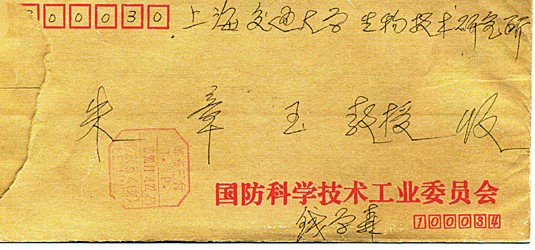 200030 上海交通大学生物技术研究所
朱章玉教授收
国防科学技术工业委员会
钱学森 100034